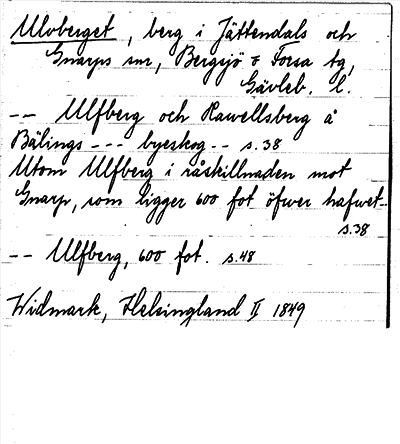 Ulvberget, berg i Jättendals och
Gnarps snr, Bergsjö o Forsa tg,
Gävleb. l.
-- Ulfberg och Rawellsberg å
Bälings --- byeskog -- s. 38
Utom Ulfberg i råskillnaden mot
Gnarp, som ligger 600 fot öfwer hafwet--
s. 38
-- Ulfberg, 600 fot. s. 48
Widmark, Helsingland II 1849